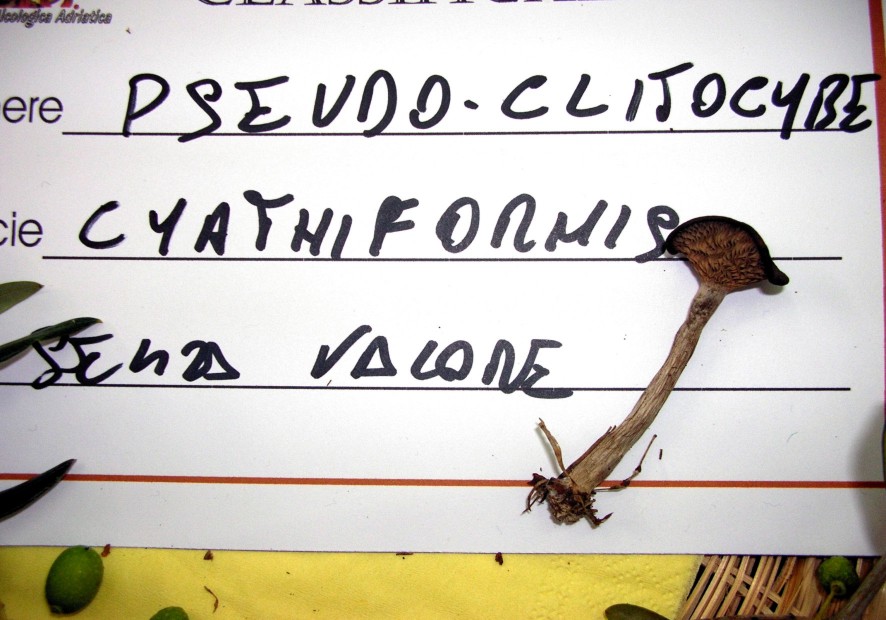 icologica Adriatica
CLASSIFICA
ere PSEUDO-CLITOCYBE
cie CYATHIFORMIS
SENZA VALORE